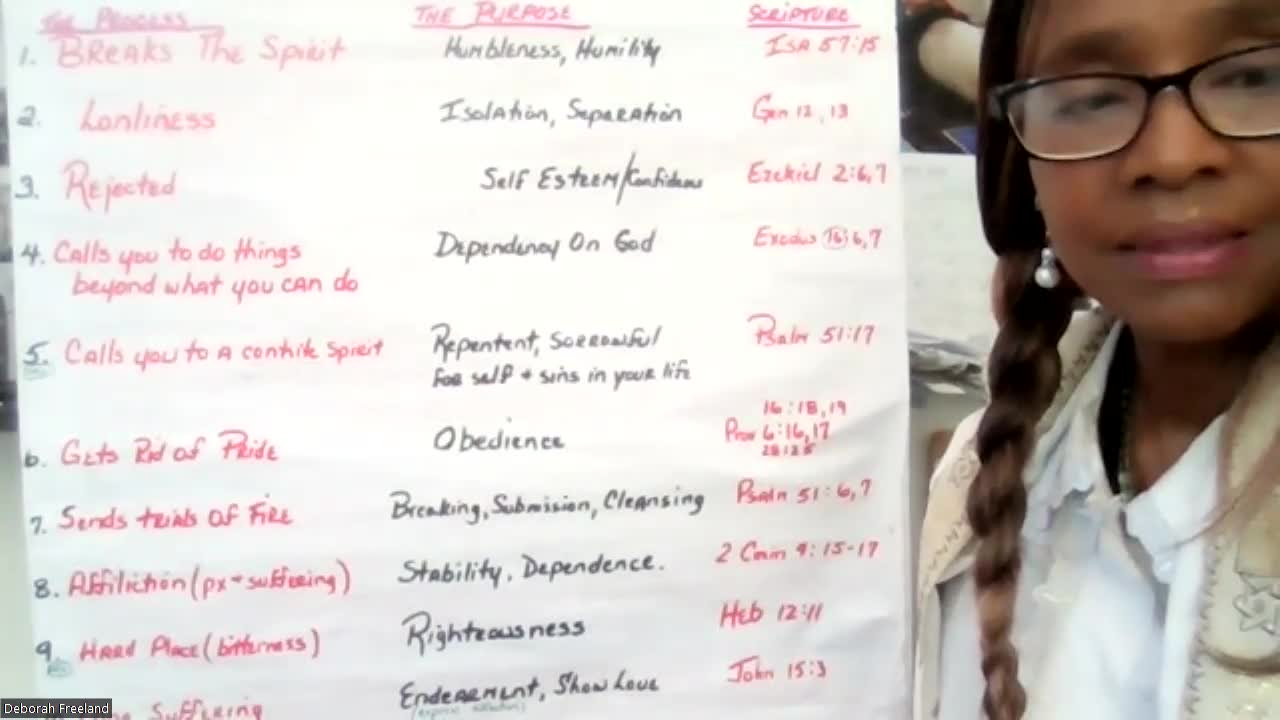 The Process The Purpose Scripture
1. Breaks The Spirit Humbleness, Humility Isa 57:15
2. Lonliness Isolation, Separation Gen 12, 13
3. Rejected Self Esteem/Confidence Ezekiel 2:6,7
4. Calls you to do things Dependency On God Exodus 16:6,7
beyond what you can do
5. Calls you to a contrite Spirit Repentent, Sorrowful Psalm 51:17
For self + sins in your life
16:18,19
6. Gets Rid of Pride Obedience Prov 6:16,17
28:25
7. Sends trials of Fire Breaking, Submission, Cleansing Psalm 51:6,7
8. Affiliction (px + suffering) Stability, Dependence. 2 Corin 9:15-17
9. Hard Place (bitterness) Righteousness Heb 12:11
Suffering Endearment, Show Love John 15:3
Deborah Freeland